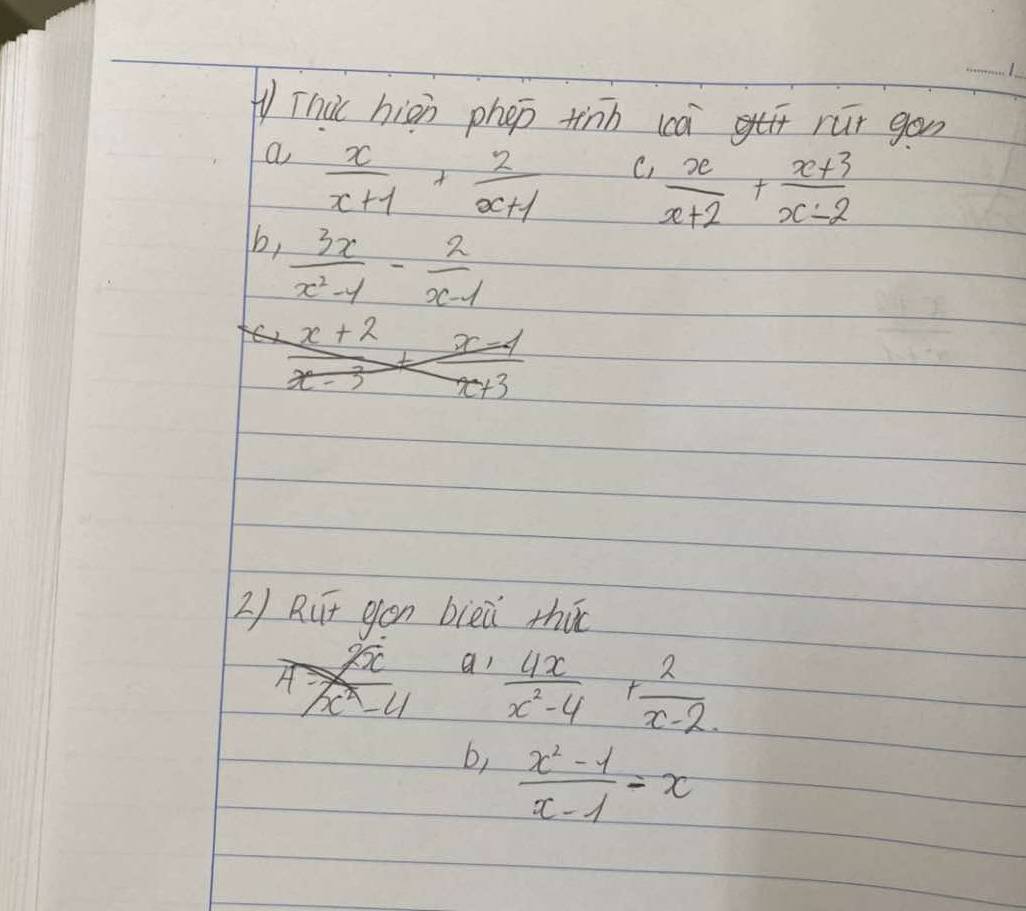 1) Thực hiện phép tính và rút gọn
a, x/(x+1) + 2/(x+1) c, x/(x+2) + (x+3)/(x-2)
b, 3x/(x²-1) - 2/(x-1)
c, (x+2)/(x-3) + (x-1)/(x+3)
2) Rút gọn biểu thức
A = 2x/(x²-4) a, 4x/(x²-4) + 2/(x-2).
b, (x²-1)/(x-1) = x